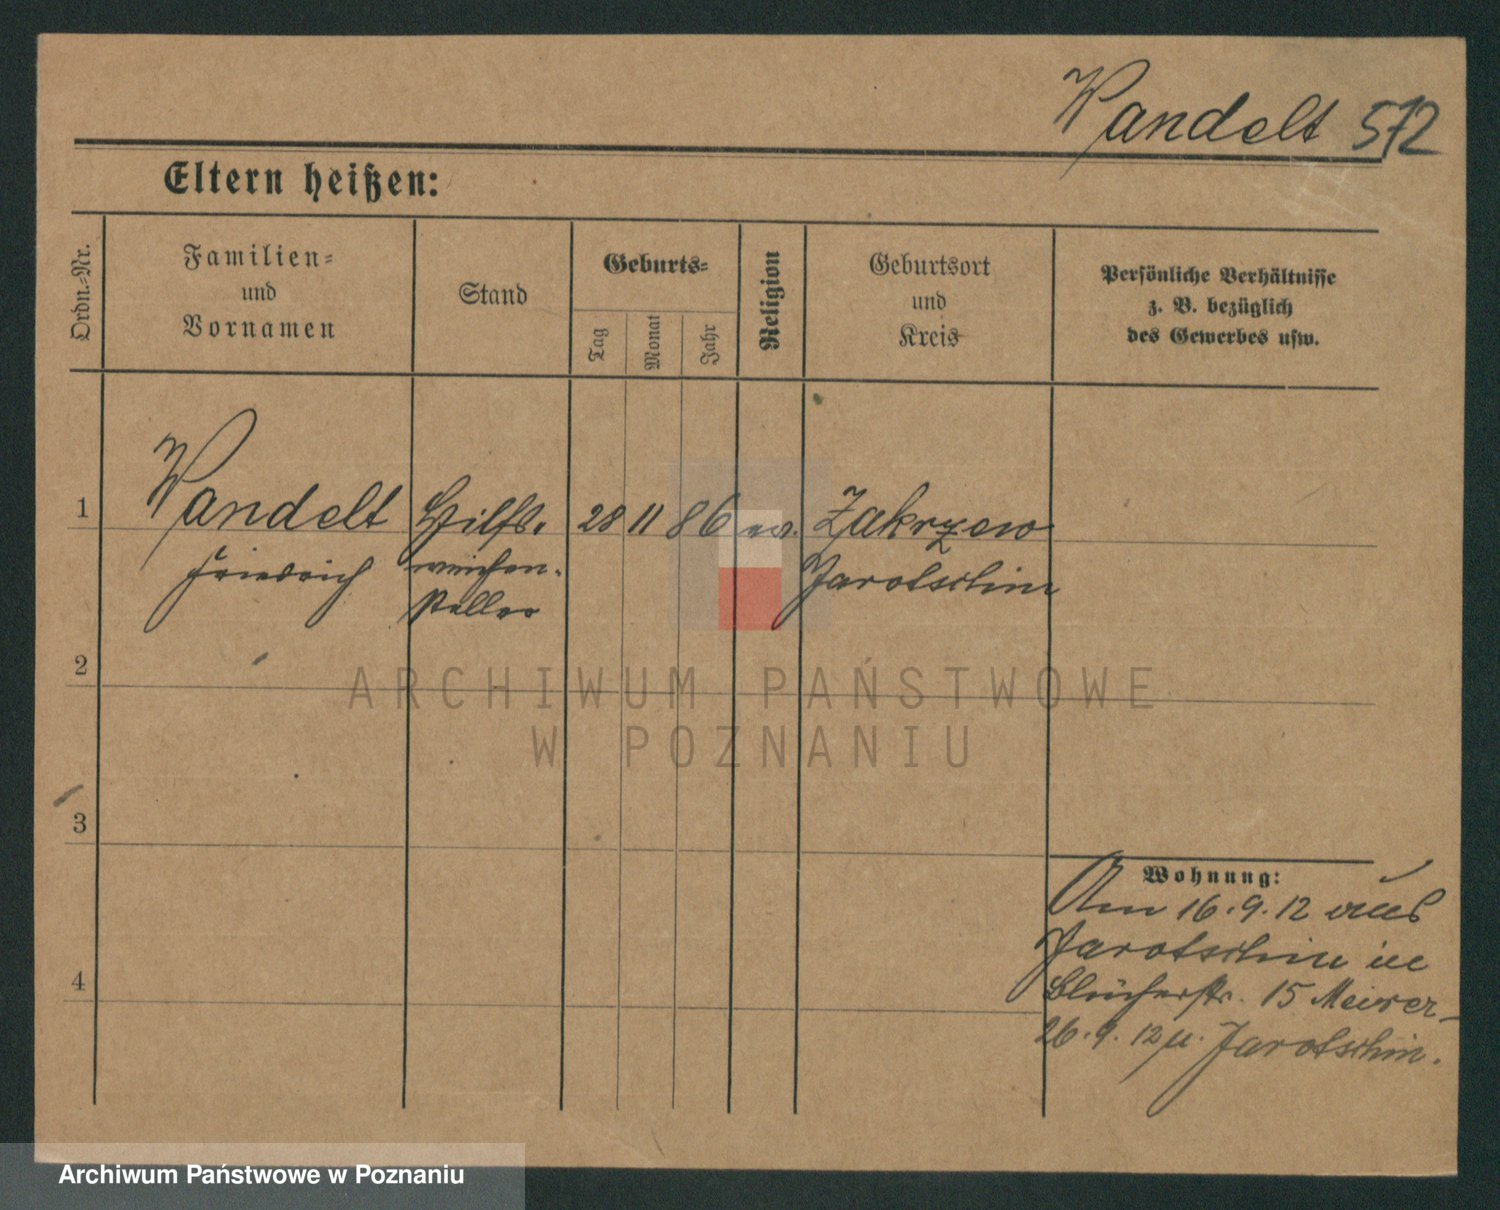 Wandelt 572
Eltern heißen:
Ordn.-Nr.
Familien-
und
Vornamen
Stand
Geburts-
Tag
Monat
Jahr
Religion
Geburtsort
und
Kreis
Persönliche Verhältnisse
z. B. bezüglich
des Gewerbes usw.
1 Wandelt Hilfs. 28 11 86 ev. Zakrzew
Friedrich weichen- Jarotschin
steller
2
3
4
Wohnung:
Am 16.9.12 aus
Jarotschin in
Blücherstr. 15
26.9.12 Jarotschin.
ARCHIWUM PAŃSTWOWE
W POZNANIU
Archiwum Państwowe w Poznaniu